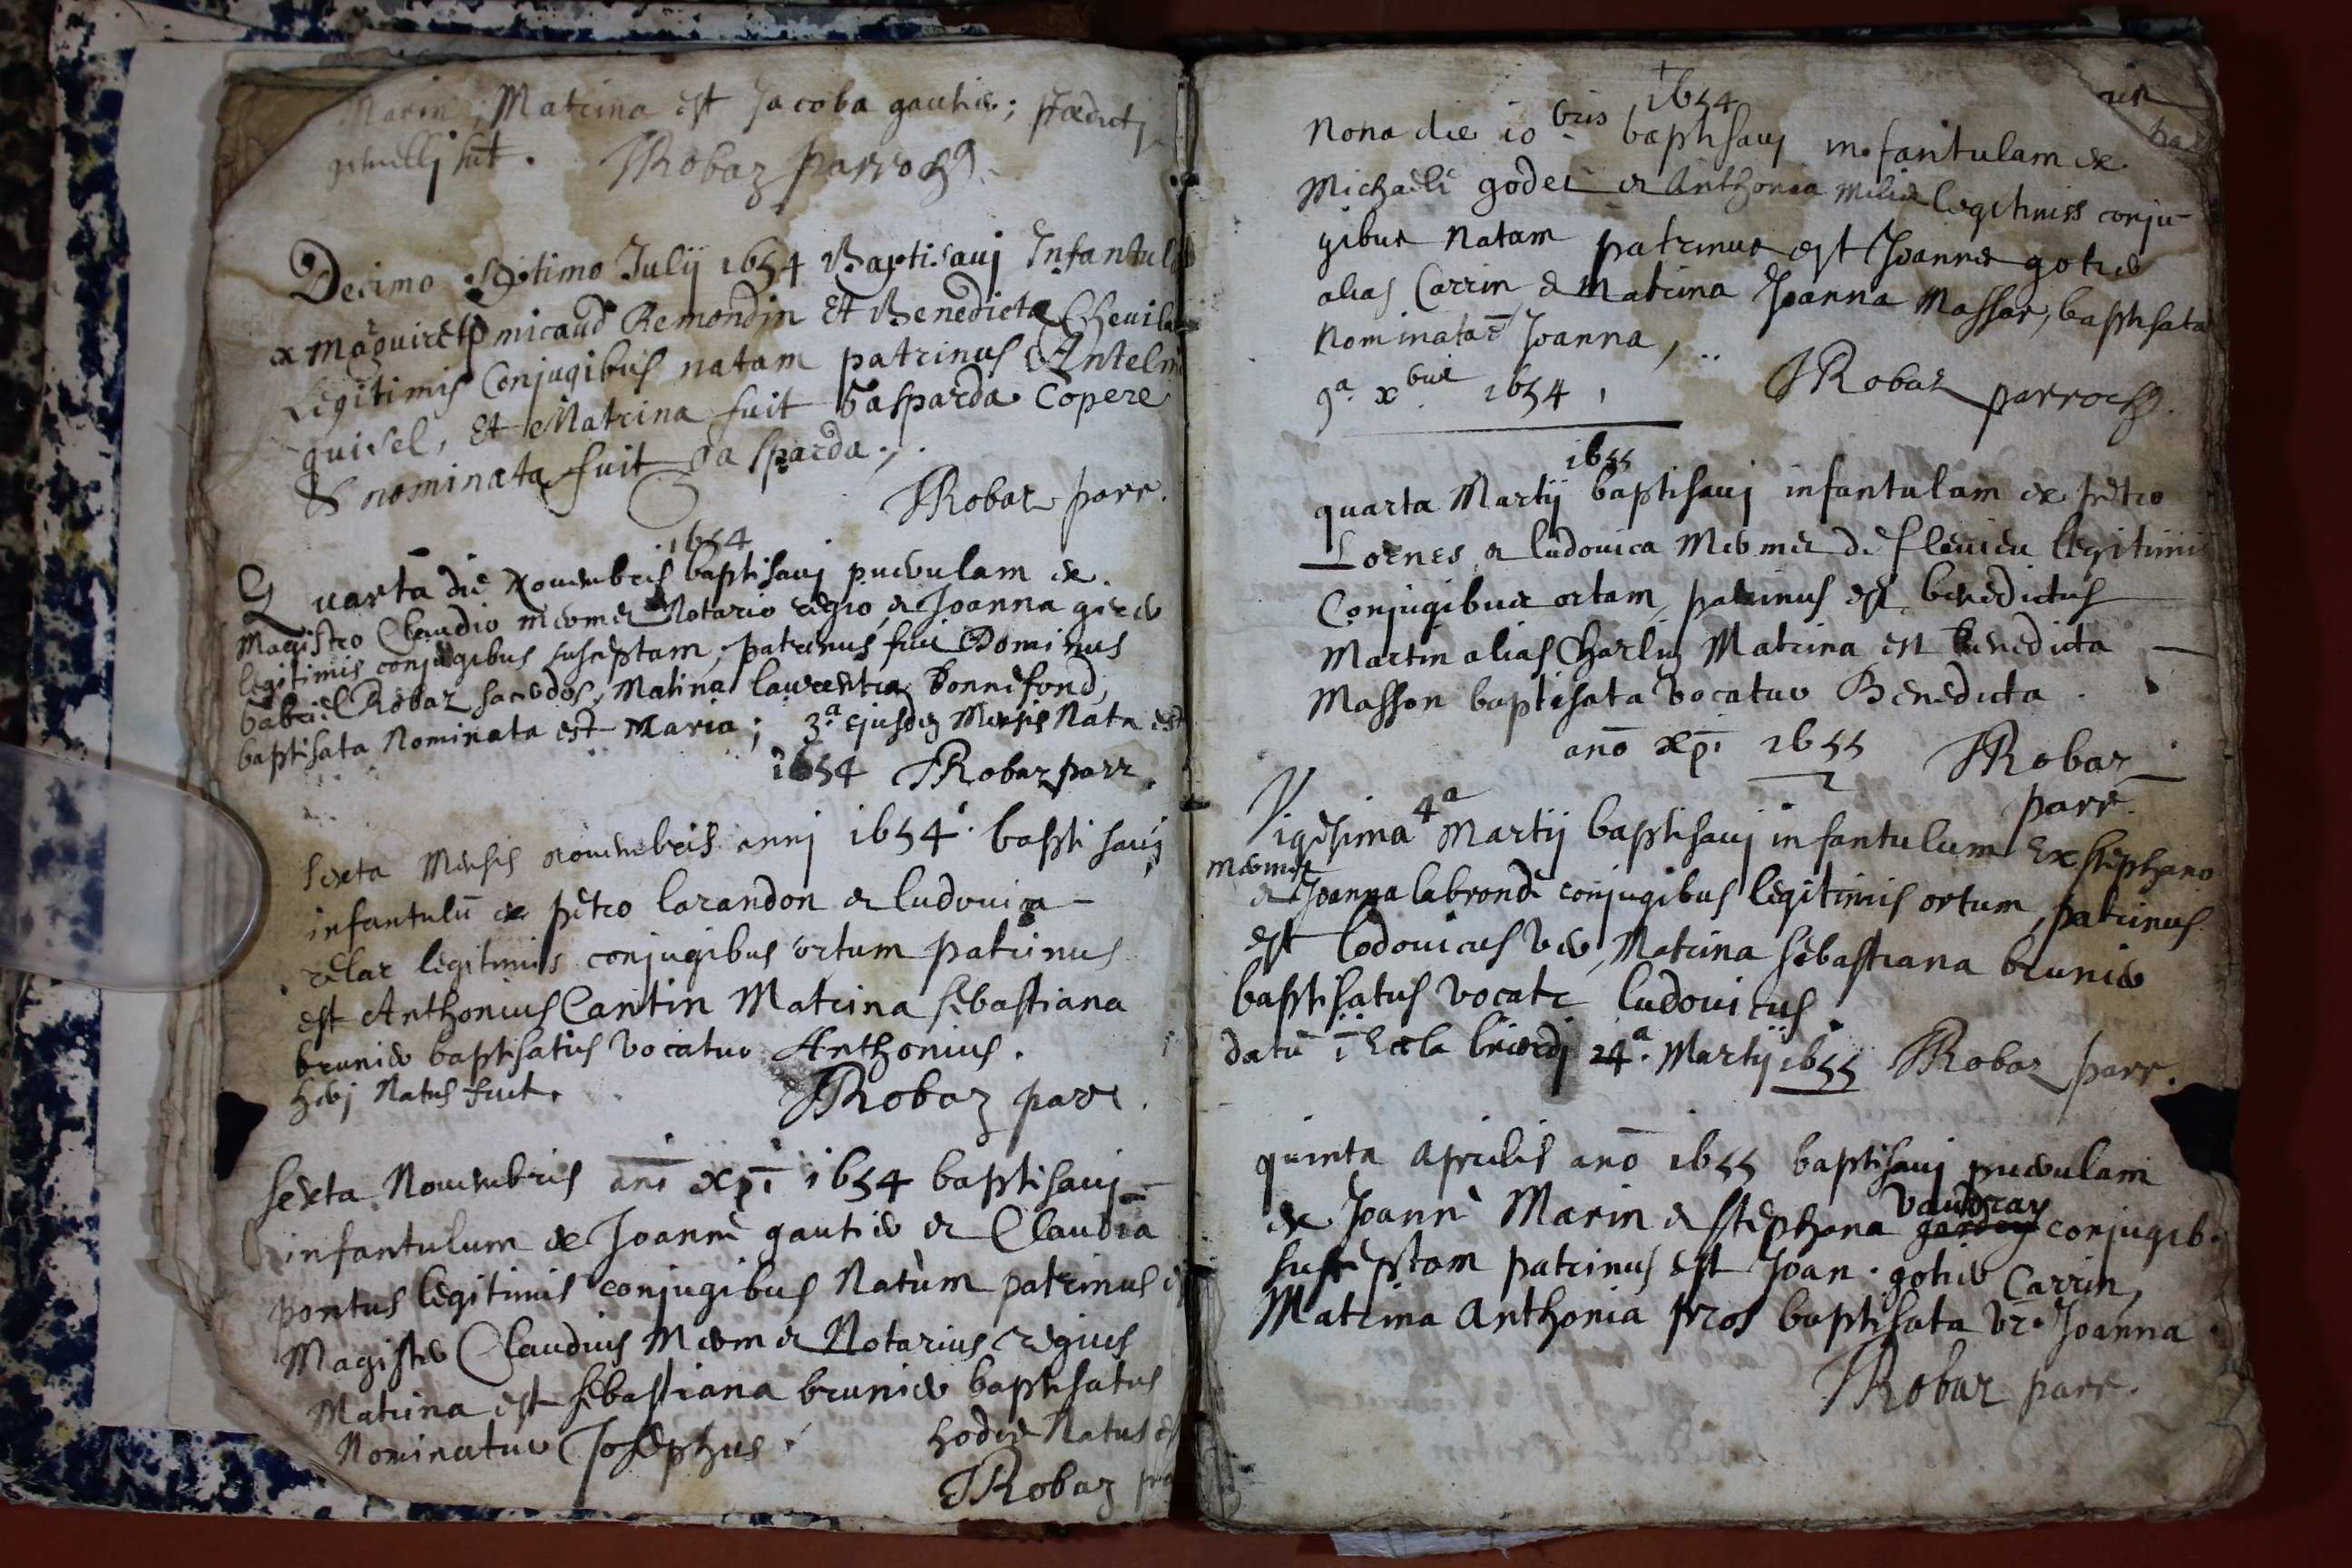 Marin, Matrina est Jacoba gautier; prædicti
gemelli sut. JRobaz parroch9
Decimo Septimo Julij 1654 Baptisavj Infantula
ex micaud Remondin Et Benedicta Chevila
Legitimis Conjugibus natam patrinus Antelm
quisel, Et Matrina fuit Gasparda Copere
& nominata fuit Gasparda.
JRobaz parr.
1654
Quarta die Novembris baptisavj puerulam ex
Magistro Claudio mermet Notario regio, et Joanna girer
legitimis conjugibus susceptam, patrinus fuit Dominus
Gabriel Robaz sacerdos, Matrina laurentia bonnefond,
baptisata Nominata est Maria; 3.a ejusdem Mensis Nata est
1654 JRobaz parr.
Sexta Mensis novembris annj 1654 baptisavj
infantulū ex petro larandon et ludovica
relar legitimis conjugibus ortum patrinus
est Anthonius Cantin Matrina sebastiana
brunier baptisatus vocatur Anthonius.
herj Natus fuit. JRobaz parr.
Sexta Novembris anī xpī 1654 baptisavj
infantulum ex Joanne gautier et Claudia
pontus legitimis conjugibus Natum patrinus e
Magister Claudius Mermet Notarius regius
Matrina est sebastiana brunier baptisatus
Nominatur Josephus. hodie Natus es
JRobaz pa
1654
Nona die 10 bris baptisavj infantulam ex
Michaele godet et Anthonia legitimiss conju-
gibus Natam patrinus est Joannes gotier
alias Carrin & Matrina Joanna Massar, baptisata
Nominatar Joanna,
9a. xbris 1654, JRobaz parroch9.
1655
quarta Martij baptisavj infantulam ex petro
Loenes et ludovica Mermet de flevieu legitimis
Conjugibus ortam, patrinus est benedictus
Martin alias Charlin Matrina est benedicta
Masson baptisata vocatur Benedicta.
anō xpī 1655 JRobaz
parr.
Vigesima 4a Martij baptisavj infantulum Ex stephano
mermet
et Joanna labronde conjugibus legitimis ortum, patrinus
est lodovicus ver, Matrina sebastiana brunier
baptisatus vocatr ludovicus
datū ī Eccla briordj 24a. Martij 1655 JRobaz parr.
quinta Aprilis anō 1655 baptisavj puerulam
vaudray
ex Joanne Marin & stephana conjugib.
susceptam patrinus est Joan. gotier Carrin,
Matrina Anthonia pros baptisata vr. Joanna.
JRobaz parr.